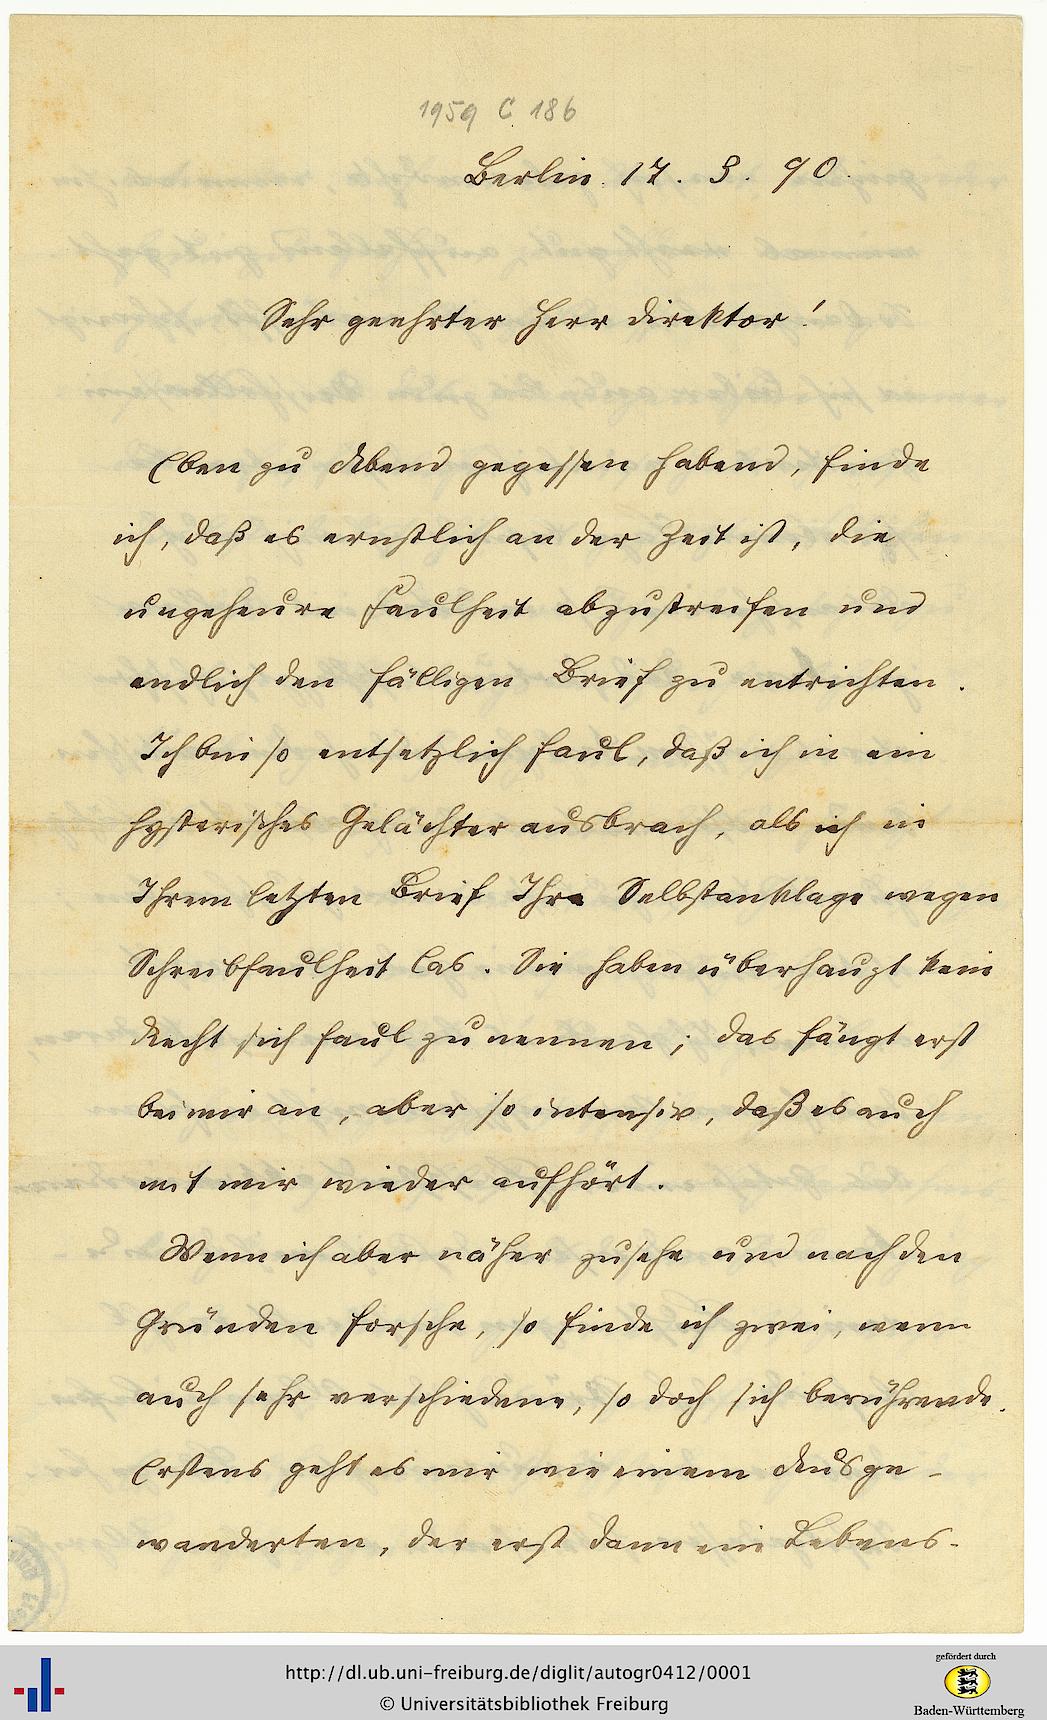 1959 C 186
Berlin. 17. 3. 90.
Sehr geehrter Herr Direktor!
Eben zu Abend gegessen habend, finde
ich, daß es ernstlich an der Zeit ist, die
ungeheure Faulheit abzustreifen und
endlich den fälligen Brief zu entrichten.
Ich bin so entsetzlich faul, daß ich in ein
hysterisches Gelächter ausbrach, als ich in
Ihrem letzten Brief Ihre Selbstanklage wegen
Schreibfaulheit las. Sie haben überhaupt kein
Recht sich faul zu nennen; das fängt erst
bei mir an, aber so intensiv, daß es auch
mit mir wieder aufhört.
Wenn ich aber näher zusehe und nach den
Gründen forsche, so finde ich zwei, wenn
auch sehr verschiedene, so doch sich berührende.
Erstens geht es mir wie einem Ausge-
wanderten, der erst dann ein Lebens-
http://dl.ub.uni-freiburg.de/diglit/autogr0412/0001
© Universitätsbibliothek Freiburg
gefördert durch
Baden-Württemberg